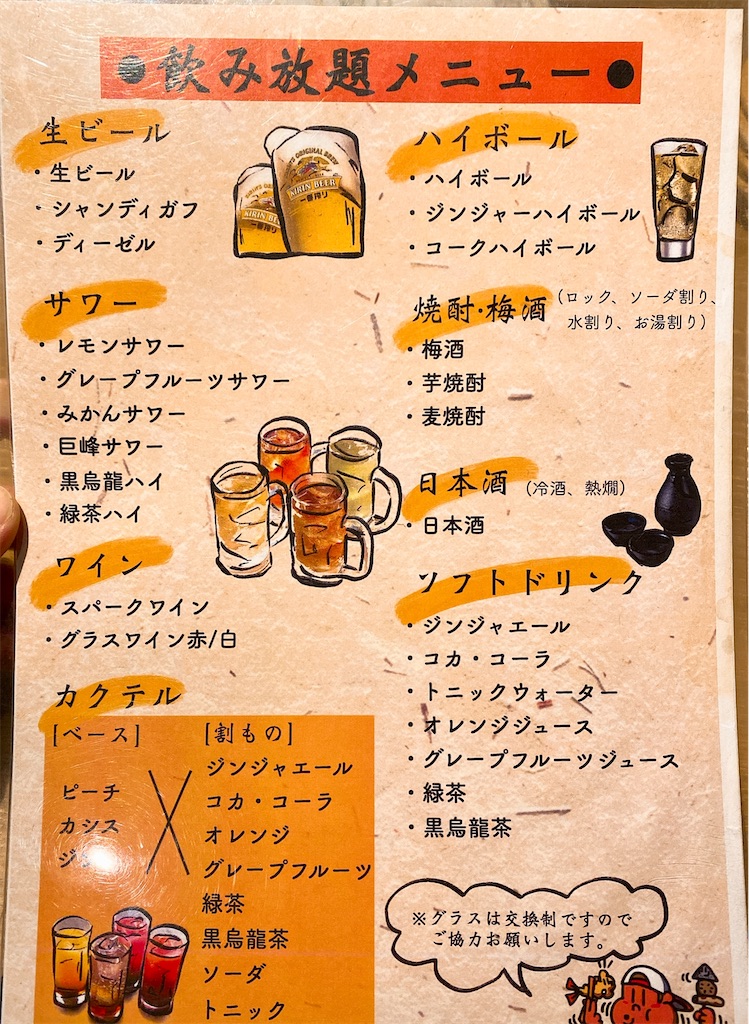 ●飲み放題メニュー●
生ビール
・生ビール
・シャンディガフ
・ディーゼル
KIRIN BEER
一番搾り
サワー
・レモンサワー
・グレープフルーツサワー
・みかんサワー
・巨峰サワー
・黒烏龍ハイ
・緑茶ハイ
ワイン
・スパークワイン
・グラスワイン赤/白
カクテル
[ベース]
ピーチ
カシス
[割もの]
ジンジャエール
コカ・コーラ
オレンジ
グレープフルーツ
緑茶
黒烏龍茶
ソーダ
トニック
ハイボール
・ハイボール
・ジンジャーハイボール
・コークハイボール
焼酎・梅酒(ロック、ソーダ割り、
水割り、お湯割り)
・梅酒
・芋焼酎
・麦焼酎
日本酒(冷酒、熱燗)
・日本酒
ソフトドリンク
・ジンジャエール
・コカ・コーラ
・トニックウォーター
・オレンジジュース
・グレープフルーツジュース
・緑茶
・黒烏龍茶
※グラスは交換制ですので
ご協力お願いします。